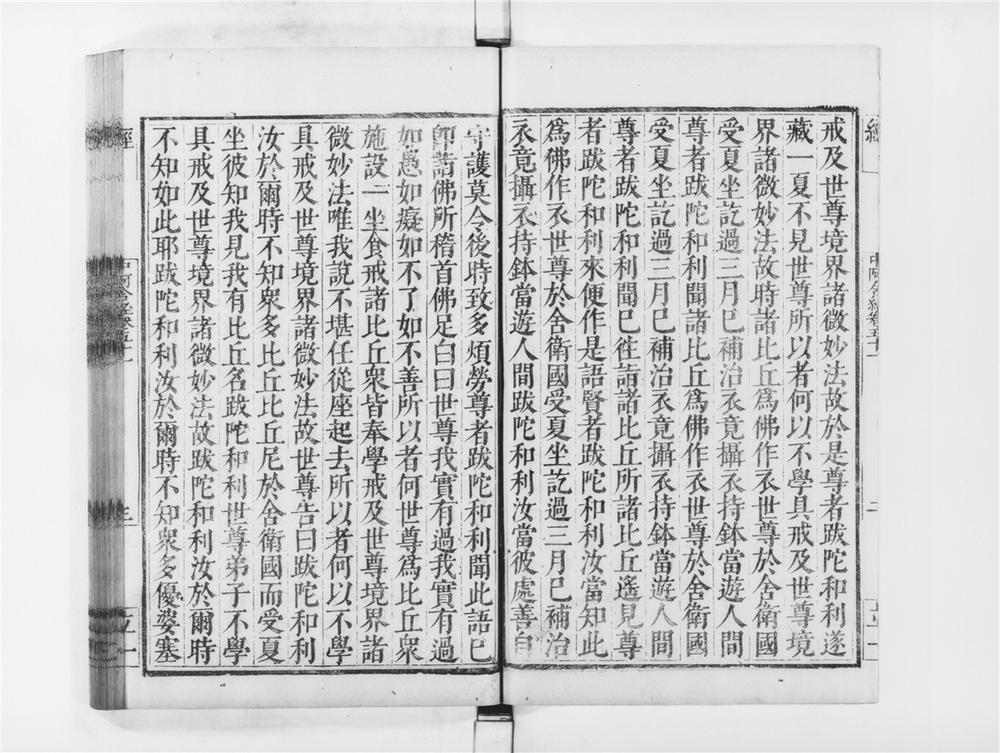 戒及世尊境界諸微妙法故於是尊者跋陀和利遂
藏一夏不見世尊所以者何以不學具戒及世尊境
界諸微妙法故時諸比丘爲佛作衣世尊於舍衛國
受夏坐訖過三月已補治衣竟攝衣持鉢當遊人間
尊者跋陀和利聞諸比丘爲佛作衣世尊於舍衛國
受夏坐訖過三月已補治衣竟攝衣持鉢當遊人間
尊者跋陀和利聞已往詣諸比丘所諸比丘遙見尊
者跋陀和利來便作是語賢者跋陀和利汝當知此
爲佛作衣世尊於舍衛國受夏坐訖過三月已補治
衣竟攝衣持鉢當遊人間跋陀和利汝當彼處善自
守護莫令後時致多煩勞尊者跋陀和利聞此語已
即詣佛所稽首佛足白曰世尊我實有過我實有過
如愚如癡如不了如不善所以者何世尊爲比丘衆
施設一坐食戒諸比丘衆皆奉學戒及世尊境界諸
微妙法唯我說不堪任從座起去所以者何以不學
具戒及世尊境界諸微妙法故世尊告曰跋陀和利
汝於爾時不知衆多比丘比丘尼於舍衛國而受夏
坐彼知我見我有比丘名跋陀和利世尊弟子不學
具戒及世尊境界諸微妙法故跋陀和利汝於爾時
不知如此耶跋陀和利汝於爾時不知衆多優婆塞
經
中阿含經卷五十一